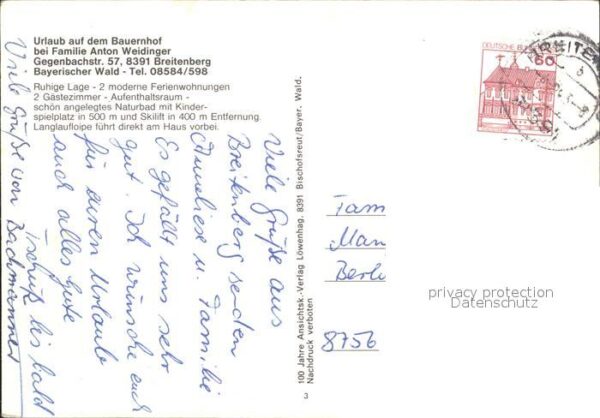 Urlaub auf dem Bauernhof
bei Familie Anton Weidinger
Gegenbachstr. 57, 8391 Breitenberg
Bayerischer Wald - Tel. 08584/598
Ruhige Lage - 2 moderne Ferienwohnungen
2 Gästezimmer - Aufenthaltsraum -
schön angelegtes Naturbad mit Kinder-
spielplatz in 500 m und Skilift in 400 m Entfernung.
Langlaufloipe führt direkt am Haus vorbei.
Viele Grüße aus
Breitenberg senden
Anneliese u. Familie
Es gefällt uns sehr
gut. Ich wünsche euch
für euren Urlaub
auch alles Gute
Tschüß bis bald
Viele Grüße von Bachmanner
100 Jahre Ansichtsk.-Verlag Löwenhag, 8391 Bischofsreut/Bayer. Wald.
Nachdruck verboten
3
DEUTSCHE BU
60
BREITE
Fam
Man
Berli
8756
privacy protection
Datenschutz